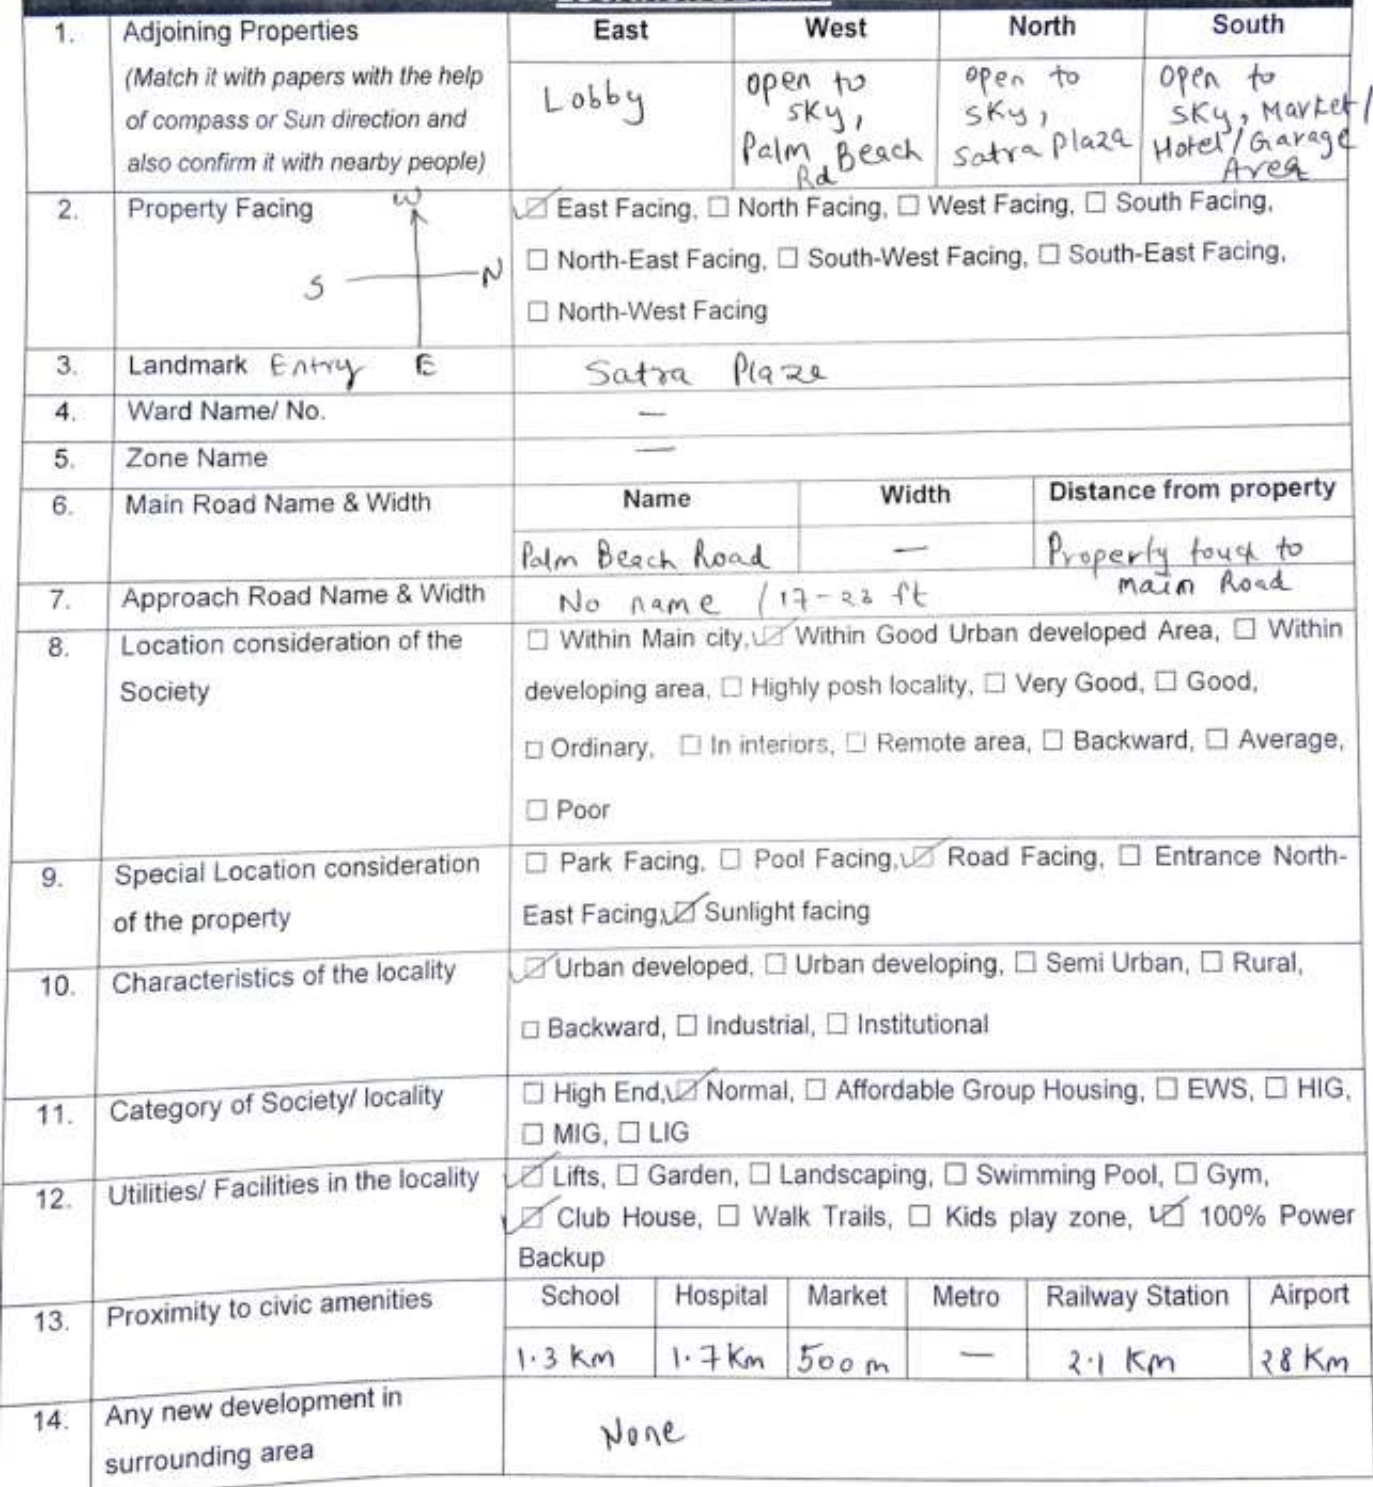 1. Adjoining Properties East West North South
(Match it with papers with the help
of compass or Sun direction and
also confirm it with nearby people)
Lobby
open to
sky,
Palm Beach
Rd
open to
sky,
Satra Plaza
open to
sky, Market/
Hotel/Garage
Area
2. Property Facing
W
S N
E
☑ East Facing, ☐ North Facing, ☐ West Facing, ☐ South Facing,
☐ North-East Facing, ☐ South-West Facing, ☐ South-East Facing,
☐ North-West Facing
3. Landmark Entry Satra Plaza
4. Ward Name/ No. —
5. Zone Name —
6. Main Road Name & Width Name Width Distance from property
Palm Beach Road — Property touch to
main Road
7. Approach Road Name & Width No name / 17-23 ft
8. Location consideration of the
Society
☐ Within Main city, ☑ Within Good Urban developed Area, ☐ Within
developing area, ☐ Highly posh locality, ☐ Very Good, ☐ Good,
☐ Ordinary, ☐ In interiors, ☐ Remote area, ☐ Backward, ☐ Average,
☐ Poor
9. Special Location consideration
of the property
☐ Park Facing, ☐ Pool Facing, ☑ Road Facing, ☐ Entrance North-
East Facing, ☑ Sunlight facing
10. Characteristics of the locality
☑ Urban developed, ☐ Urban developing, ☐ Semi Urban, ☐ Rural,
☐ Backward, ☐ Industrial, ☐ Institutional
11. Category of Society/ locality
☐ High End, ☑ Normal, ☐ Affordable Group Housing, ☐ EWS, ☐ HIG,
☐ MIG, ☐ LIG
12. Utilities/ Facilities in the locality
☑ Lifts, ☐ Garden, ☐ Landscaping, ☐ Swimming Pool, ☐ Gym,
☑ Club House, ☐ Walk Trails, ☐ Kids play zone, ☑ 100% Power
Backup
13. Proximity to civic amenities School Hospital Market Metro Railway Station Airport
1.3 Km 1.7 Km 500 m — 2.1 Km 28 Km
14. Any new development in
surrounding area
None